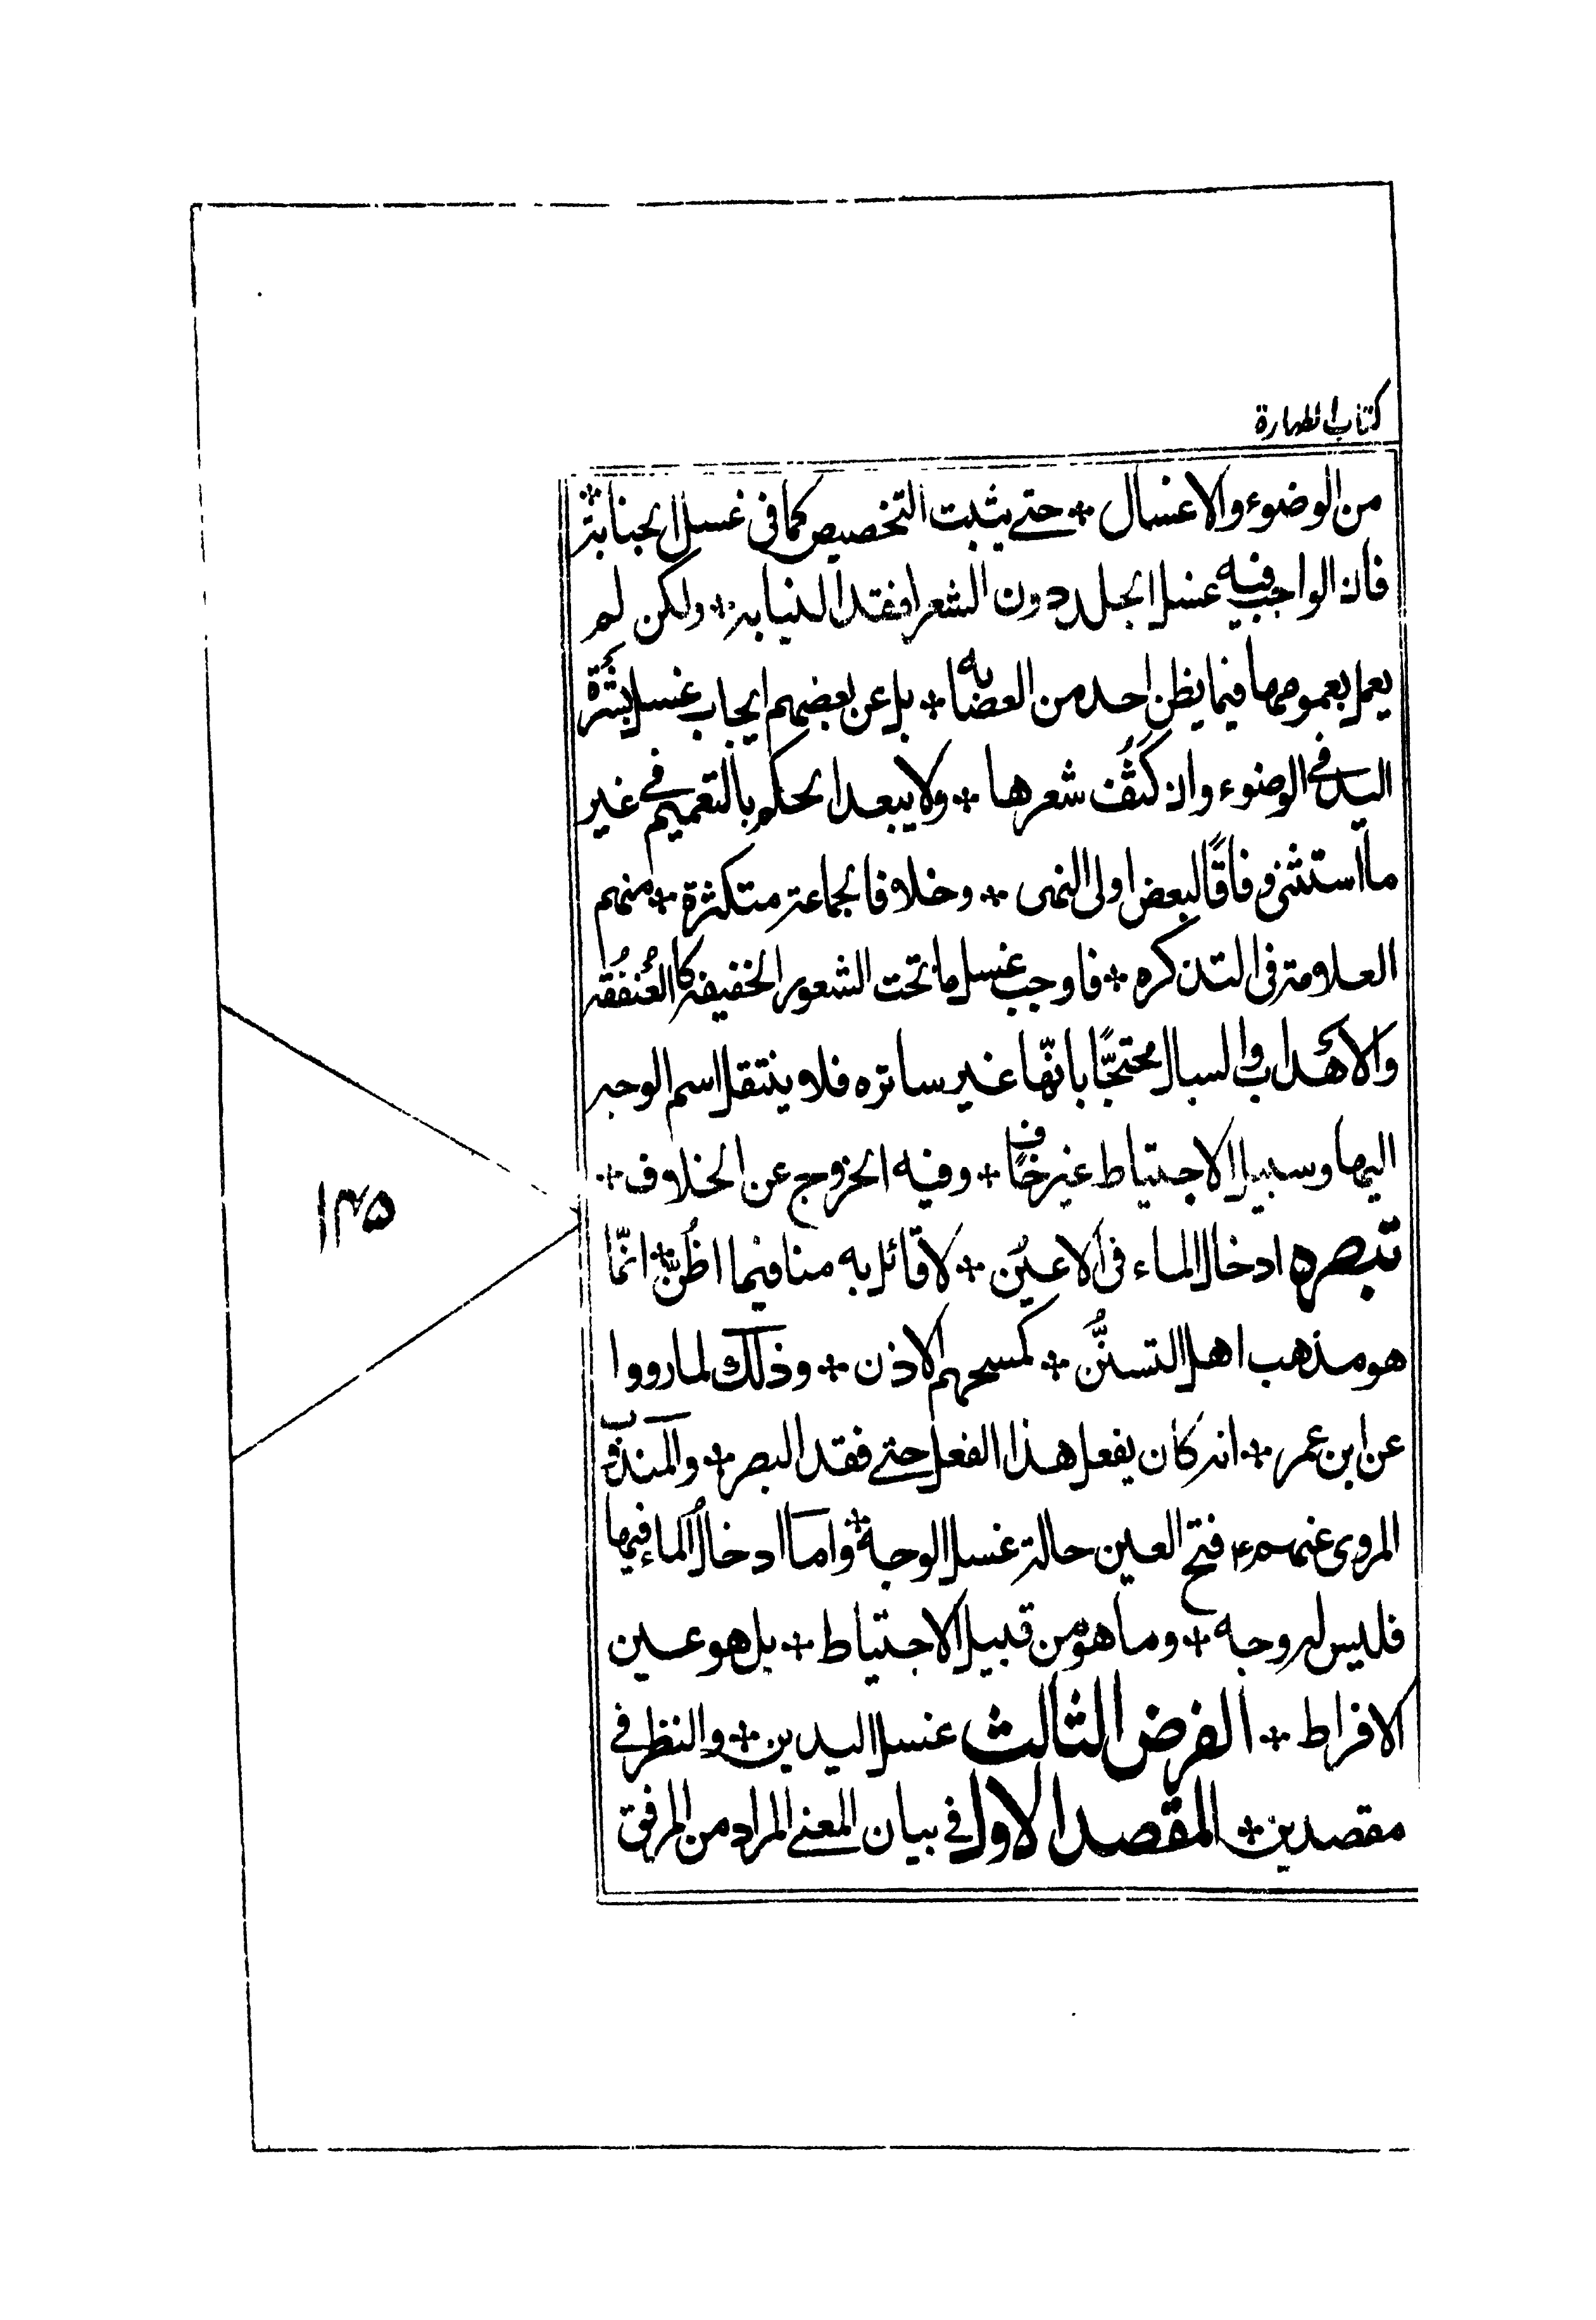 كتاب الطهارة
من الوضوء والاغسال ÷ حتے يثبت التخصيص كما فى غسل الجنابة ÷
فان الواجب فيه غسل الجلد دون الشعر لفقد النيابة ÷ ولكن لم
يعمل بعمومها فيما يظن احد من العصابه ÷ بل عن بعضهم ايجاب غسل بشَرة
اليد فے الوضوء وان كَثُف شعرها ÷ ولا يبعد الحكم بالتعميم فے غير
ما استثنى وفاقًا لبعض اولى النهى ÷ وخلافا لجماعة متكثرة ÷ منهم
العلامة فى التذكره ÷ فاوجب غسل ما تحت الشعور الخفيفة كالعُنفُقة
والأهداب والسبال محتجًّا بانّها غير ساتره فلا ينتقل اسم الوجه
اليها وسبيل الاحتياط غير خاف ÷ وفيه الخروج عن الخلاف ÷
تبصره ادخال الماء فى الاعيُن ÷ لا قائل به منا فيما اظُنّ ÷ انّما
هو مذهب اهل التسنُّن ÷ كمسحهم الاذن ÷ وذلك لما رووا
عن ابن عمر ÷ انه كان يفعل هذا الفعل حتے فقد البصر ÷ والمندوب
المروى عنهمؑ فتح العين حالة غسل الوجه ÷ واما ادخالُ الماءِ فيها
فليس له وجه ÷ وما هو من قبيل الاحتياط ÷ بل هو عين
الافراط ÷ الفرض الثالث غسل اليدين ÷ والنظر فے
مقصدين ÷ المقصد الاول فے بيان المعنے المراد من المرفق
۱۳۵